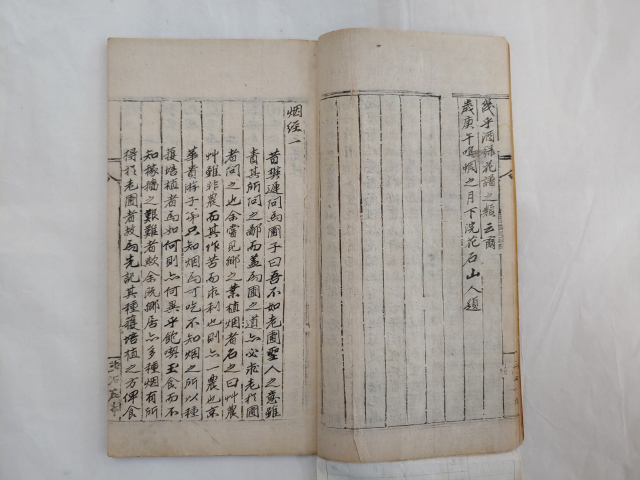 幾乎酒錄花譜之類云爾
歲庚午鳴蜩之月下浣花石山人題
烟經一
昔樊遲問爲圃子曰吾不如老圃聖人之意雖
責其所問之鄙而盖爲圃之道亦必求老於圃
者問之也余嘗見鄕之業植烟者名之曰艸農
艸雖非農而其作苦而求利也則亦一農也京
華貴游子弟只知烟爲可吃不知烟之所以種
蓺培植者爲如何則亦何異乎飽喫玉食而不
知稼穡之艱難者歟余旣鄕居亦多種烟有所
得於老圃者故爲先記其種蓺培植之方俾食